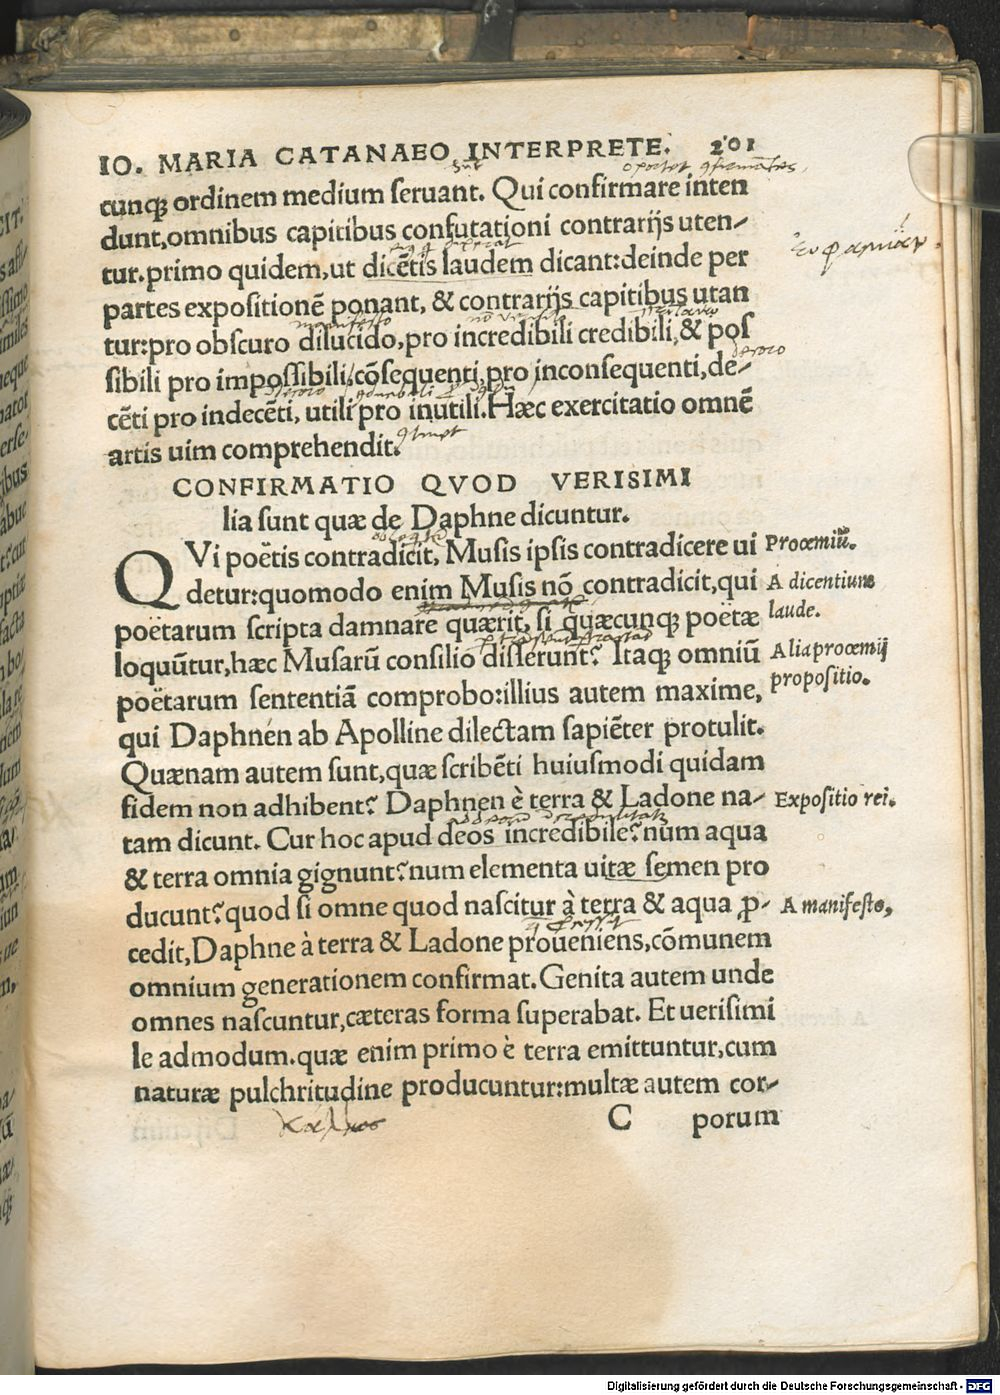 IO. MARIA CATANAEO INTERPRETE. 201
cunqꝫ ordinem medium ſeruant. Qui confirmare inten
dunt,omnibus capitibus confutationi contrarijs uten-
tur.primo quidem,ut dicẽtis laudem dicant:deinde per
partes expoſitionẽ ponant, & contrarijs capitibus utan
tur:pro obſcuro dilucido,pro incredibili credibili,& poſ
ſibili pro impoſſibili,cõſequenti pro inconſequenti,de-
cẽti pro indecẽti, utili pro inutili.Hæc exercitatio omnẽ
artis uim comprehendit.
CONFIRMATIO QVOD VERISIMI
lia ſunt quæ de Daphne dicuntur.
QVi poëtis contradicit, Muſis ipſis contradicere ui
Proœmiũ.
detur:quomodo enim Muſis nõ contradicit,qui
A dicentium
laude.
poëtarum ſcripta damnare quærit, ſi quæcunqꝫ poëtæ
loquũtur,hæc Muſarũ conſilio diſſerunt? Itaqꝫ omniũ
Alia proœmij
propoſitio.
poëtarum ſententiã comprobo:illius autem maxime,
qui Daphnen ab Apolline dilectam ſapiẽter protulit.
Quænam autem ſunt,quæ ſcribẽti huiuſmodi quidam
fidem non adhibent? Daphnen è terra & Ladone na-
Expoſitio rei.
tam dicunt. Cur hoc apud deos incredibile? num aqua
& terra omnia gignunt? num elementa uitæ ſemen pro
ducunt? quod ſi omne quod naſcitur à terra & aqua ꝓ-
A manifeſto,
cedit,Daphne à terra & Ladone proueniens,cõmunem
omnium generationem confirmat. Genita autem unde
omnes naſcuntur,cæteras forma ſuperabat. Et ueriſimi
le admodum.quæ enim primo è terra emittuntur,cum
naturæ pulchritudine producuntur:multæ autem cor-
κάλλος
C porum
Digitalisierung gefördert durch die Deutsche Forschungsgemeinschaft - DFG